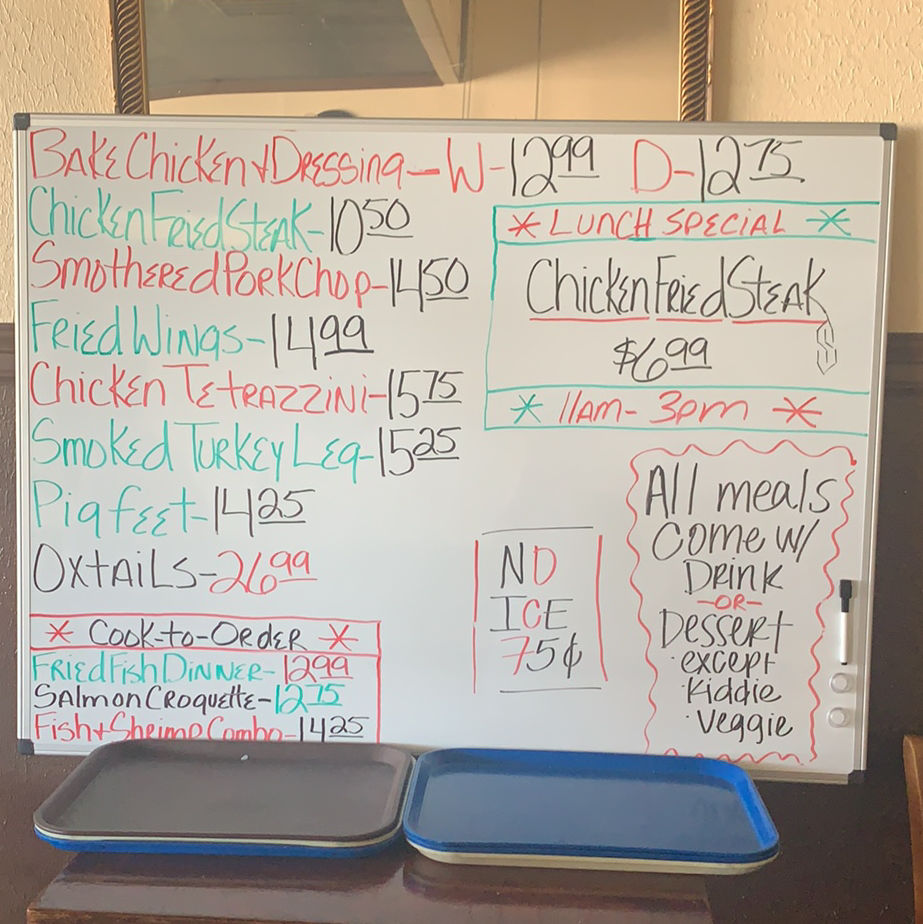 Bake Chicken + Dressing - W - 12 99 D - 12 75
Chicken Fried Steak - 10 50
Smothered Pork Chop - 14 50
Fried Wings - 14 99
Chicken Tetrazzini - 15 75
Smoked Turkey Leg - 15 25
Pig feet - 14 25
Oxtails - 26 99
* Cook-to-Order *
Fried Fish Dinner - 12 99
Salmon Croquette - 12 75
Fish + Shrimp Combo - 14 25
* Lunch Special *
Chicken Fried Steak
$6 99
* 11am - 3pm *
NO
ICE
75¢
All meals
Come w/
Drink
-OR-
Dessert
except
·Kiddie
·Veggie